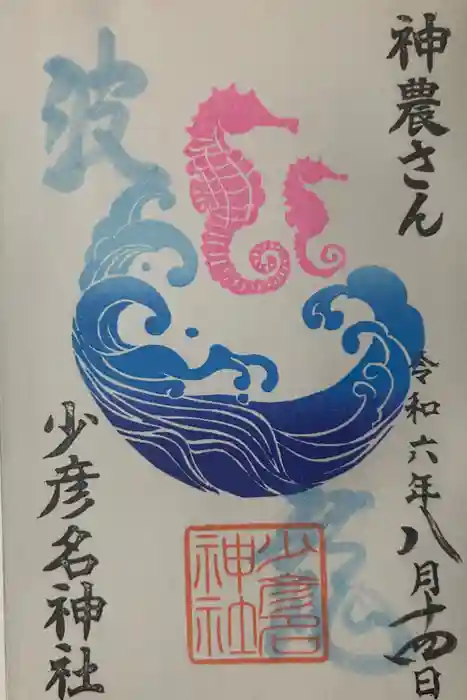 神農さん
令和六年八月十四日
波
少彦名神社
少彦名
神社